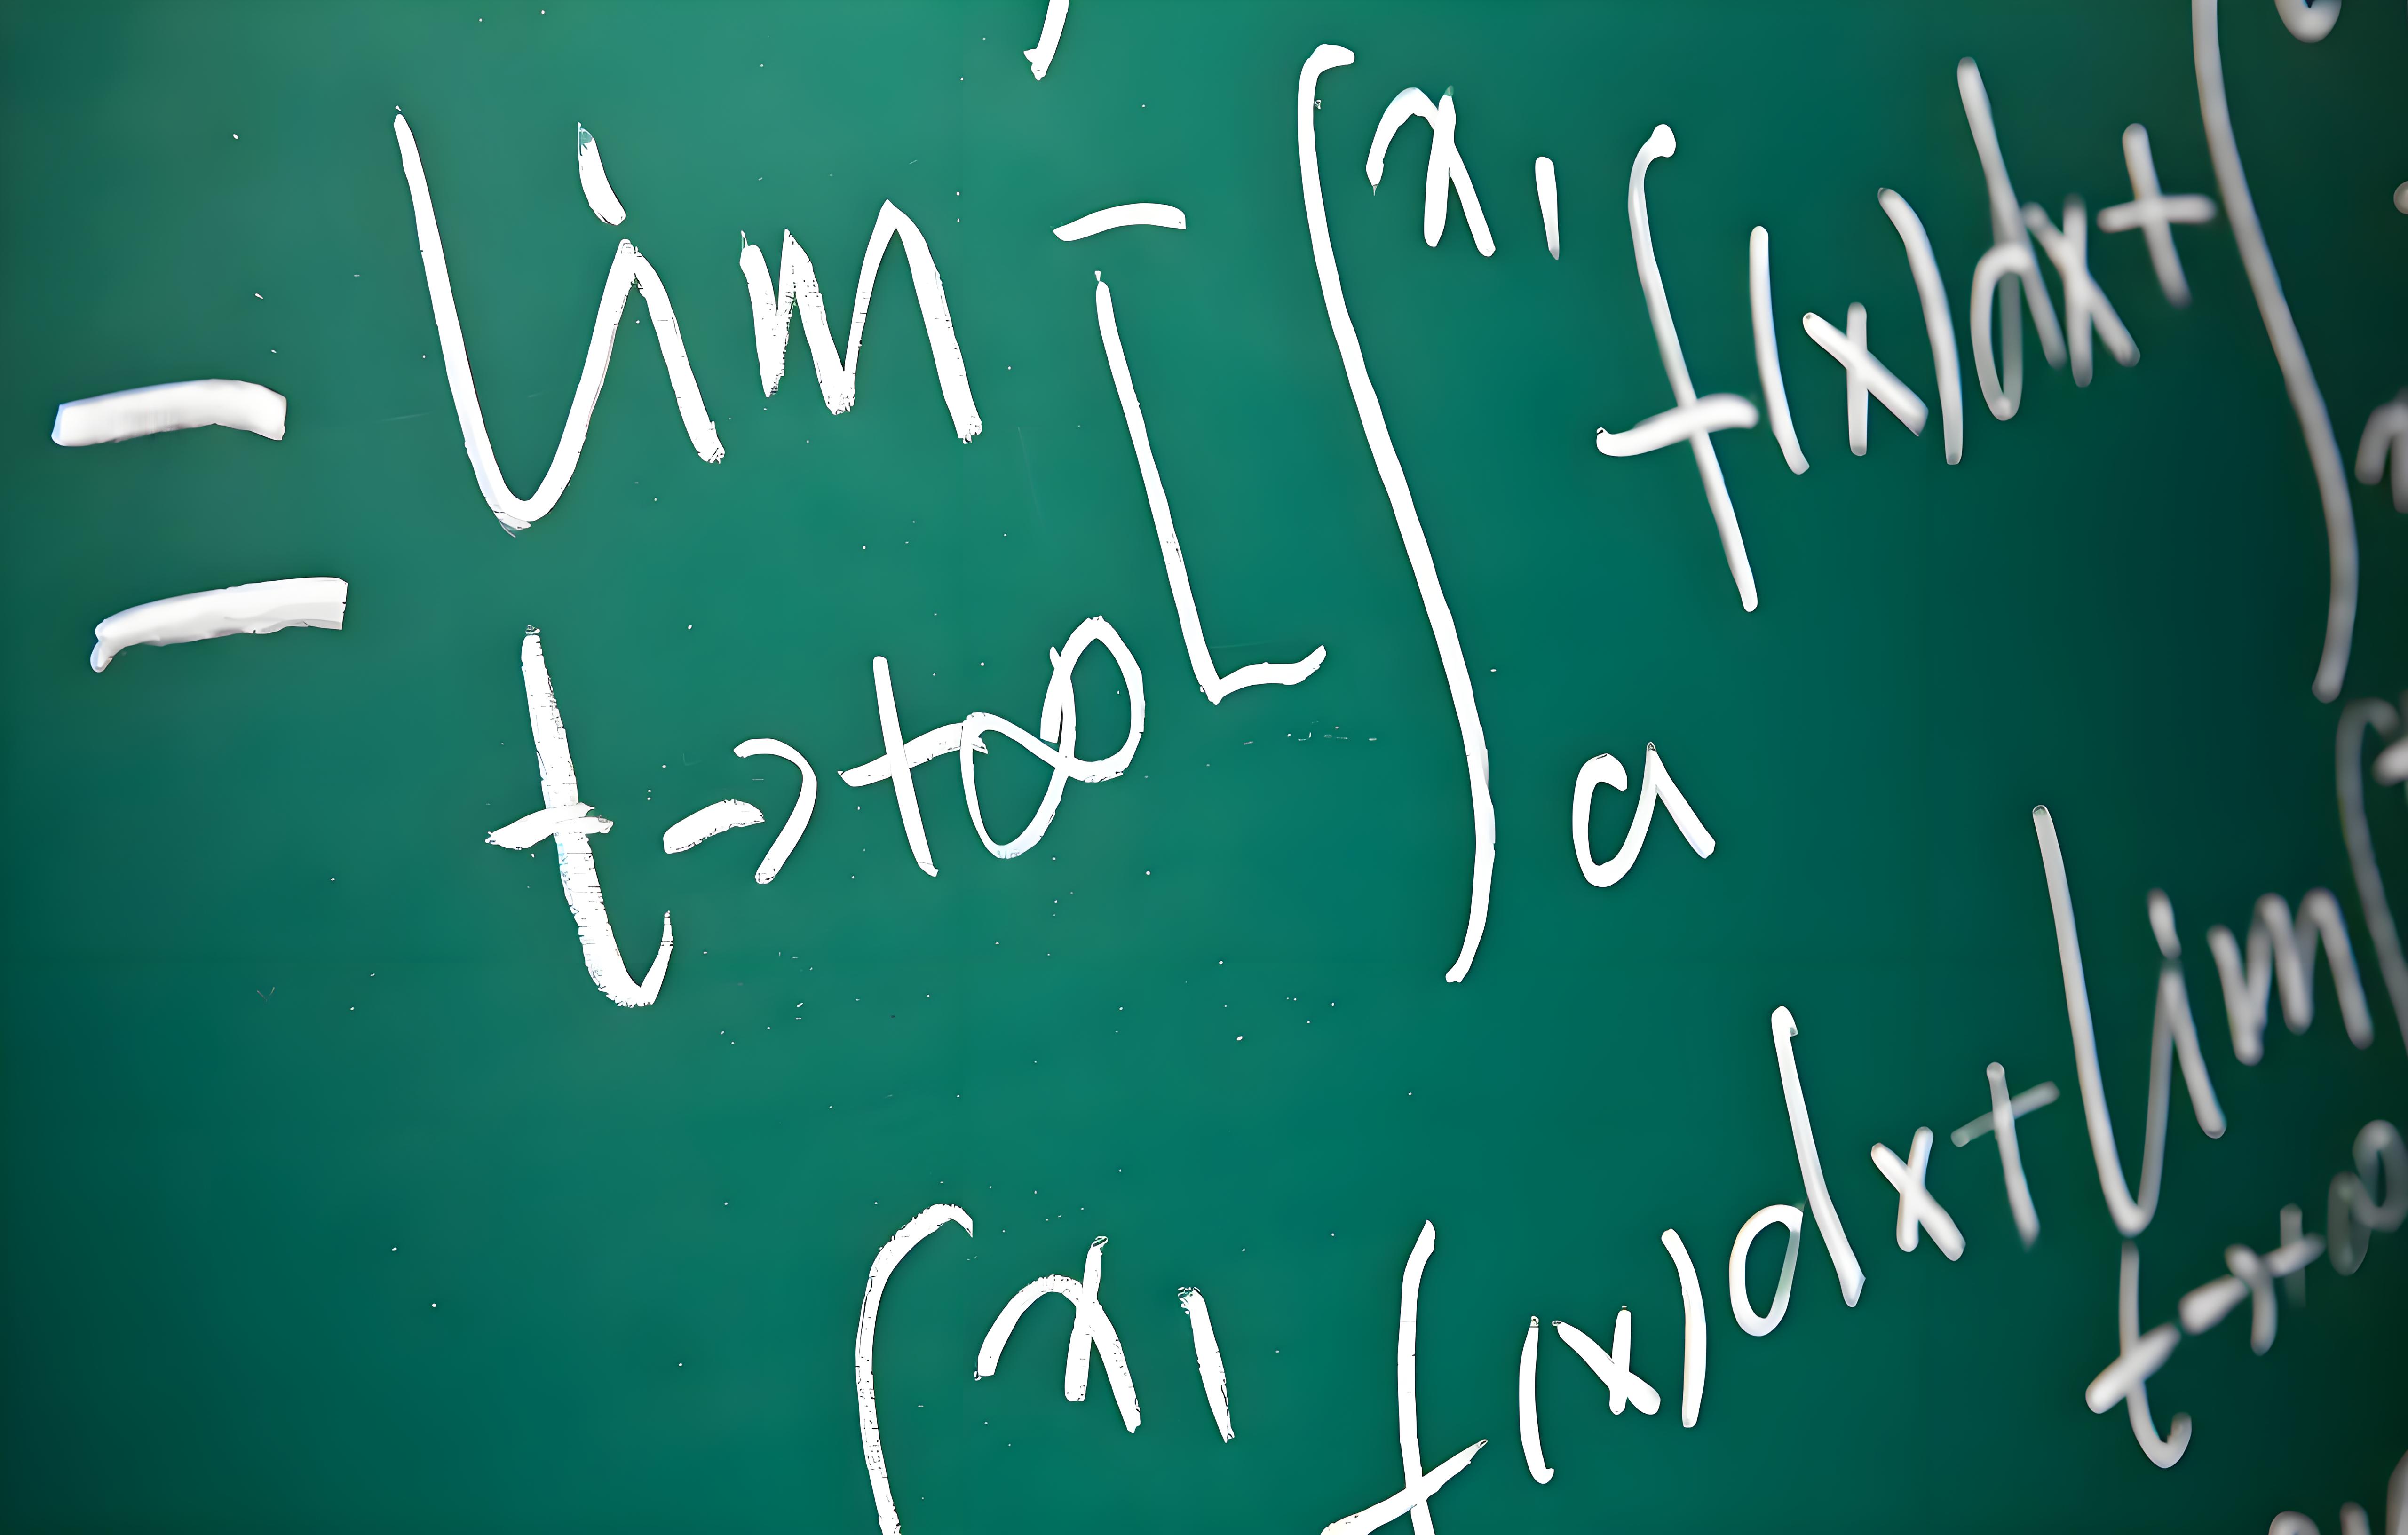 = lim [ ∫ x1 f(x)dx + ∫
t→+∞ a
∫ x1 f(x)dx + lim ∫
t→+∞